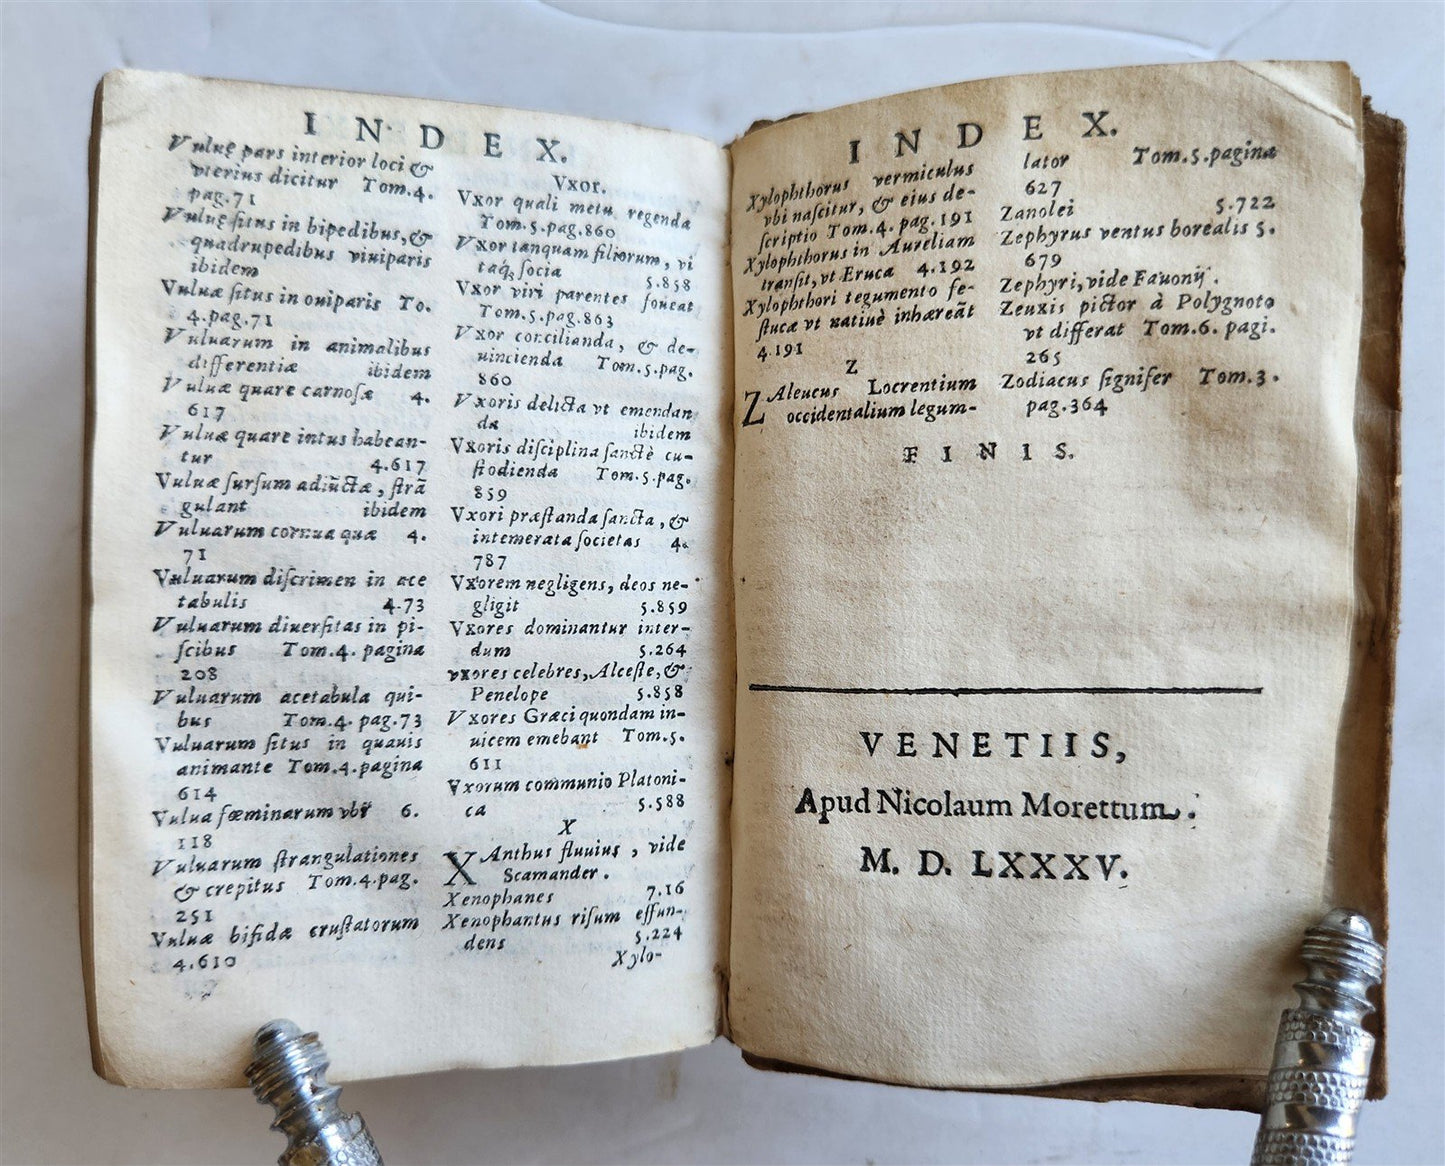 INDEX.
Vuluę pars interior loci &
vterius dicitur Tom.4.
pag.71
Vuluę ſitus in bipedibus, &
quadrupedibus viuiparis
ibidem
Vuluæ ſitus in ouiparis To.
4.pag.71
Vuluarum in animalibus
differentiæ ibidem
Vuluæ quare carnoſæ 4.
617
Vuluæ quare intus habean-
tur 4.617
Vuluæ ſurſum adiūctæ, ſtrā
gulant ibidem
Vuluarum cornua quæ 4.
71
Vuluarum diſcrimen in ace
tabulis 4.73
Vuluarum diuerſitas in pi-
ſcibus Tom.4. pagina
208
Vuluarum acetabula qui-
bus Tom.4. pag.73
Vuluarum ſitus in quauis
animante Tom.4.pagina
614
Vulua fœminarum vbi 6.
118
Vuluarum ſtrangulationes
& crepitus Tom.4.pag.
251
Vuluæ bifidæ cruſtatorum
4.610
Vxor.
Vxor quali metu regenda
Tom.5.pag.860
Vxor tanquam filiorum, vi
táq; ſocia 5.858
Vxor viri parentes foueat
Tom.5.pag.863
Vxor concilianda, & de-
uincienda Tom.5.pag.
860
Vxoris delicta vt emendan
da ibidem
Vxoris diſciplina ſanctè cu-
ſtodienda Tom.5.pag.
859
Vxori præſtanda ſancta, &
intemerata ſocietas 4.
787
Vxorem negligens, deos ne-
gligit 5.859
Vxores dominantur inter-
dum 5.264
vxores celebres, Alceſte, &
Penelope 5.858
Vxores Græci quondam in-
uicem emebant Tom.5.
611
Vxorum communio Platoni-
ca 5.588
X
XAnthus fluuius, vide
Scamander.
Xenophanes 7.16
Xenophantus riſum effun-
dens 5.224
Xylo-
INDEX.
Xylophthorus vermiculus
vbi naſcitur, & eius de-
ſcriptio Tom.4. pag.191
Xylophthorus in Aureliam
tranſit, vt Eruca 4.192
Xylophthori tegumento fe-
ſtucæ vt natiuè inhæreāt
4.191
Z
ZAleucus Locrentium
occidentalium legum-
lator Tom.5.pagina
627
Zanolei 5.722
Zephyrus ventus borealis 5.
679
Zephyri, vide Fauonij.
Zeuxis pictor à Polygnoto
vt differat Tom.6. pagi.
265
Zodiacus ſignifer Tom.3.
pag.364
FINIS.
VENETIIS,
Apud Nicolaum Morettum.
M. D. LXXXV.